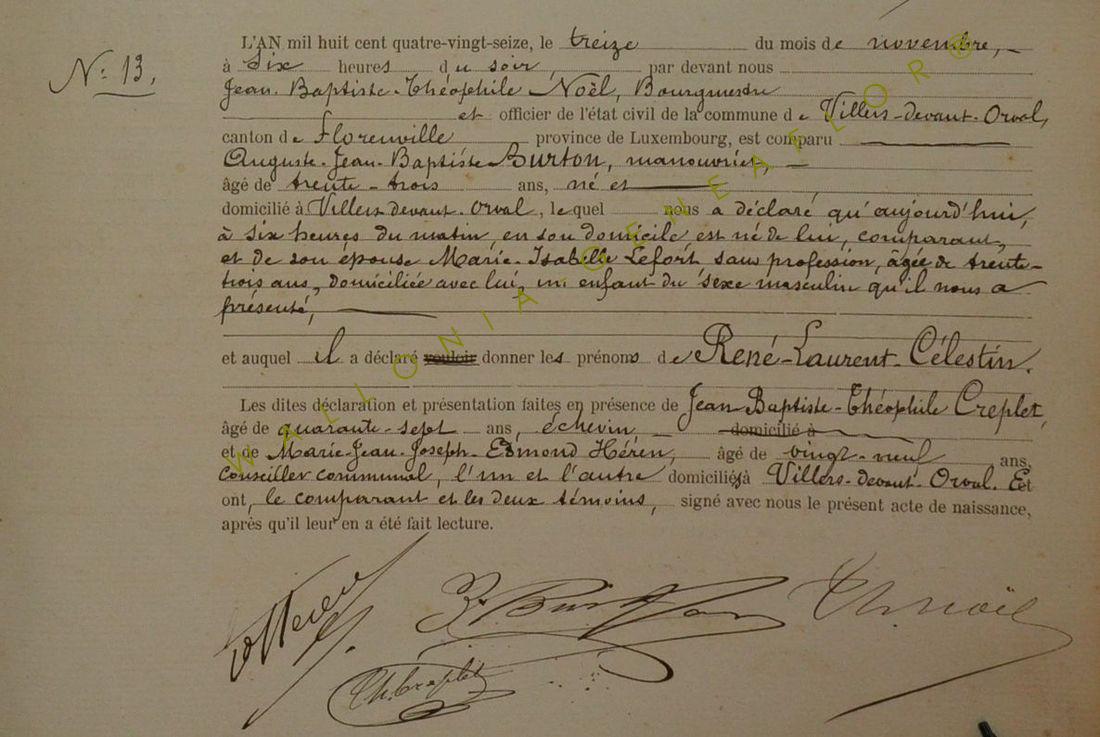 N: 13.
L'AN mil huit cent quatre-vingt-seize, le treize du mois de novembre,
à six heures du soir, par devant nous
Jean-Baptiste-Théophile Noël, Bourgmestre
et officier de l'état civil de la commune de Villers-devant-Orval,
canton de Florenville province de Luxembourg, est comparu
Auguste-Jean-Baptiste Burton, manouvrier,
âgé de trente-trois ans, né et
domicilié à Villers-devant-Orval, lequel nous a déclaré qu'aujourd'hui,
à six heures du matin, en son domicile est né de lui, comparant,
et de son épouse Marie-Isabelle Lefort sans profession, âgée de trente-
trois ans, domiciliée avec lui, un enfant du sexe masculin qu'il nous a
présenté,
et auquel il a déclaré vouloir donner les prénoms de René-Laurent-Célestin.
Les dites déclaration et présentation faites en présence de Jean-Baptiste-Théophile Creplet,
âgé de quarante-sept ans, échevin domicilié à
et de Marie-Jean-Joseph-Edmond Hérin, âgé de vingt-neuf ans,
conseiller communal, l'un et l'autre domiciliés à Villers-devant-Orval. Et
ont, le comparant et les deux témoins, signé avec nous le présent acte de naissance,
après qu'il leur en a été fait lecture.
Burton
Th. Noël
Th. Creplet
WALLONIA GENEAFLOR®